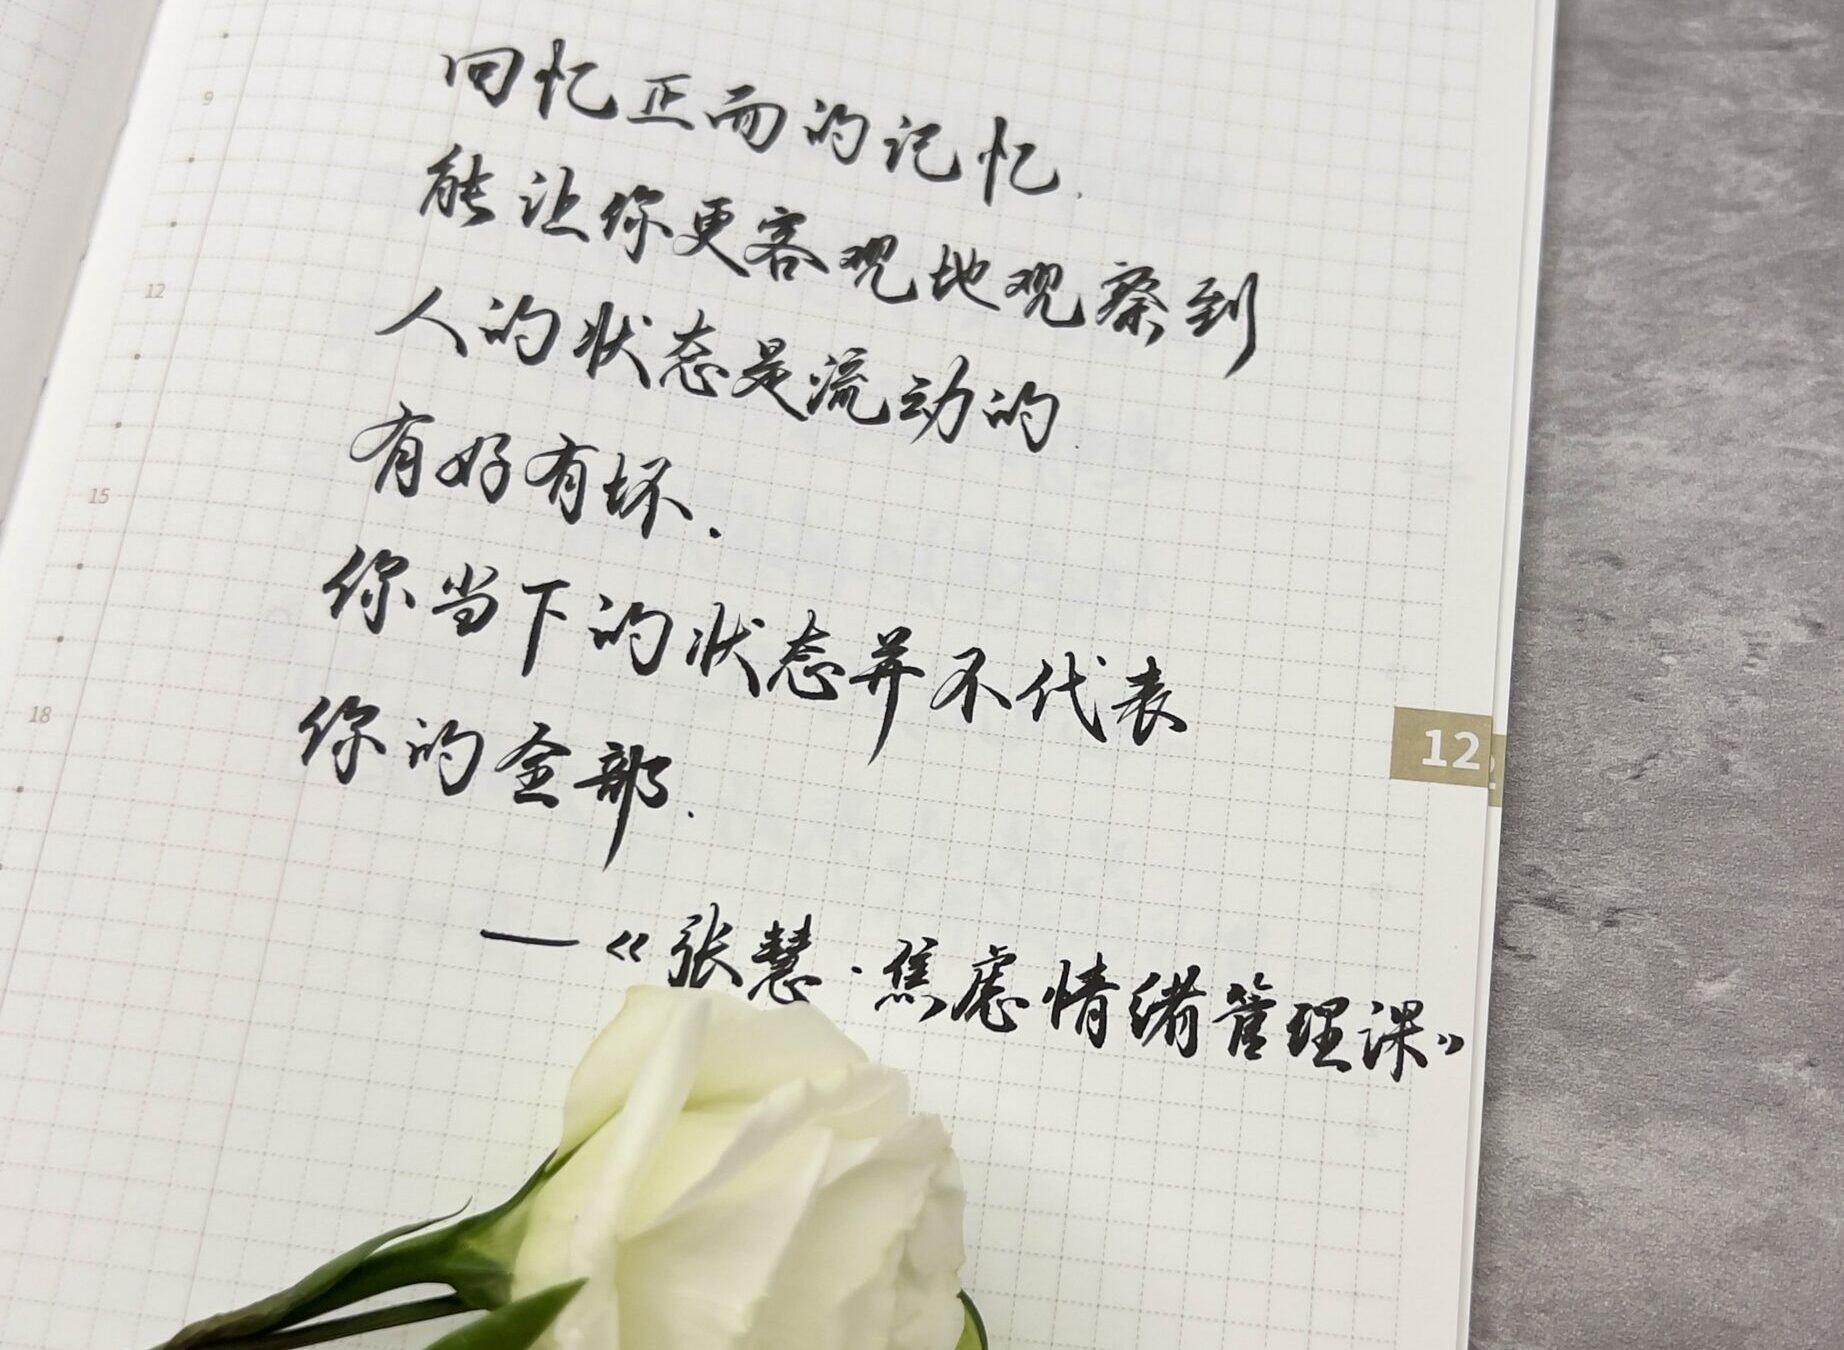 回忆正面的记忆.
能让你更客观地观察到
人的状态是流动的.
有好有坏.
你当下的状态并不代表
你的全部.
—《张慧·焦虑情绪管理课》
9
12
15
18
12